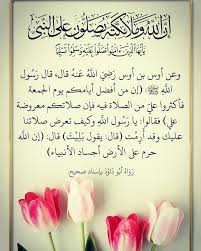 إن الله وملائكته يصلون على النبي
يأيها الذين ءامنوا صلوا عليه وسلموا تسليما
وعن أوس بن أوس رَضِيَ اللهُ عَنهُ قال، قال رَسُول
اللهِ ﷺ: (إن من أفضل أيامكم يوم الجمعة
فأكثروا عليّ من الصلاة فيه فإن صلاتكم معروضة
علي) فقالوا: يا رَسُول اللَّهِ وكيف تعرض صلاتنا
عليك وقد أرمت (قال: يقول بَلِيْتَ) قال: (إن الله
حرم على الأرض أجساد الأنبياء)
رَوَاهُ أبُو دَاوُدَ بإسناد صحيح.